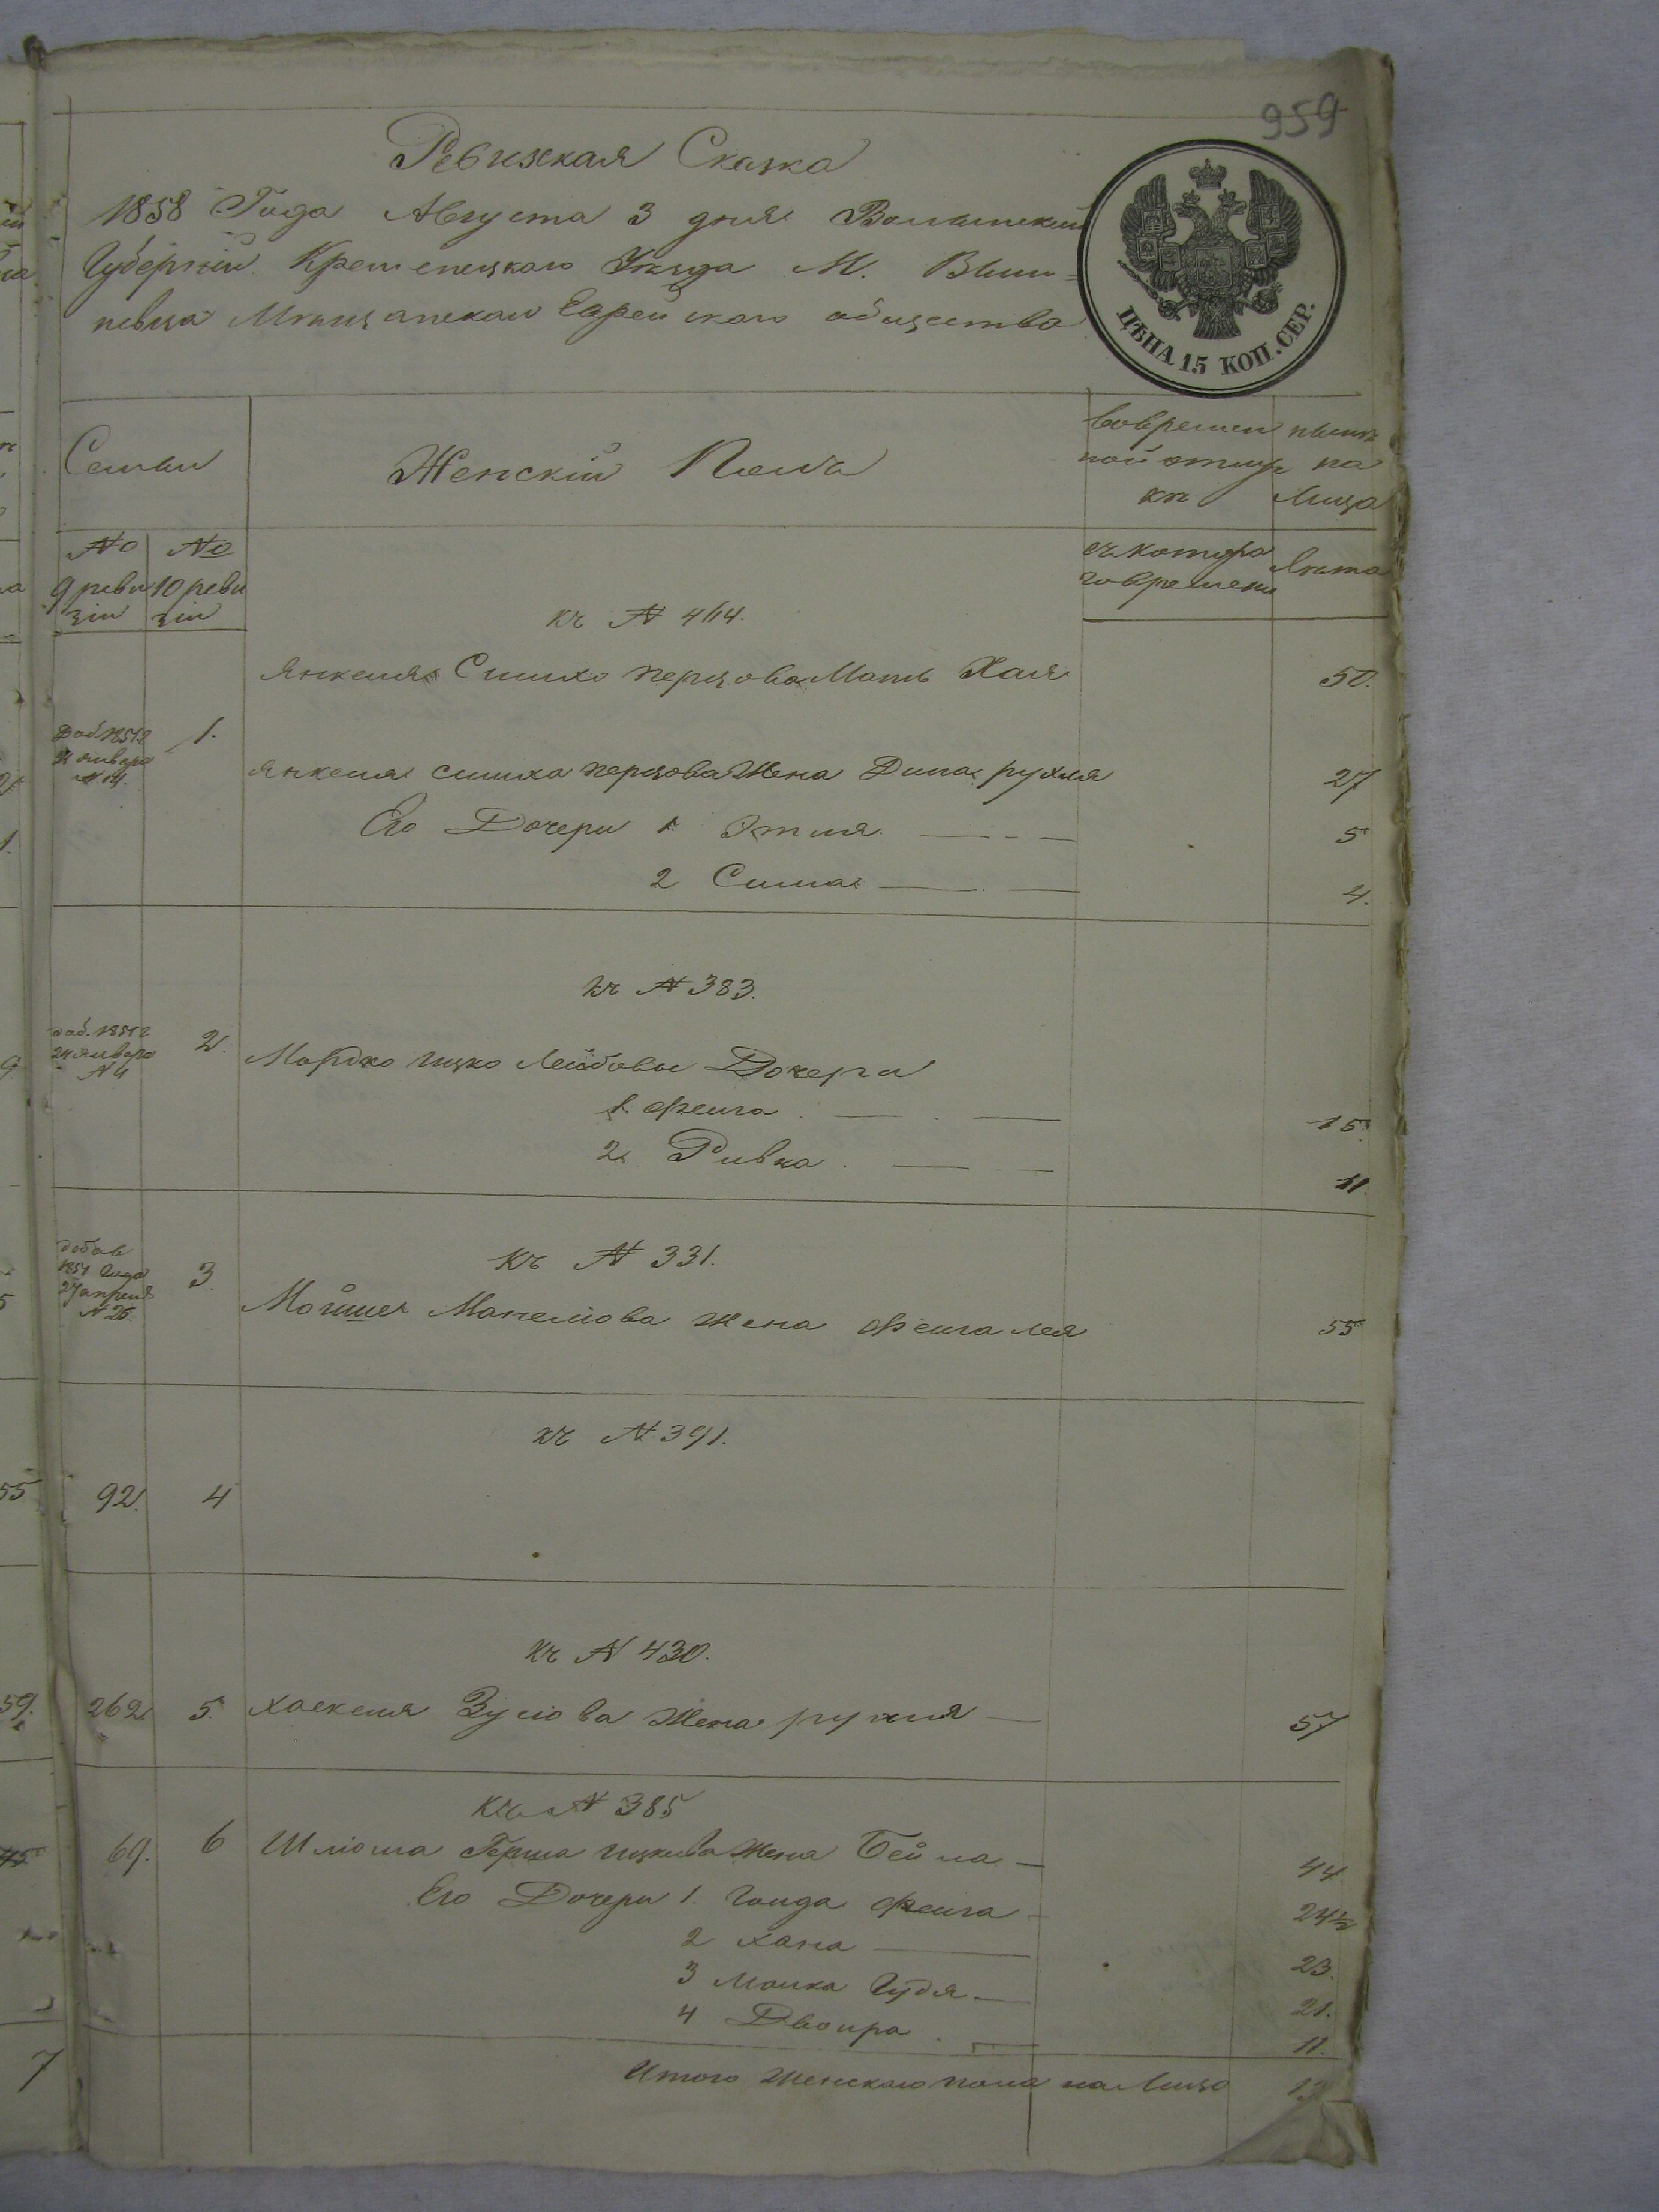 959
Ревизская Сказка
1858 Года Августа 3 дня Волынской
Губерніи Кременецкаго Уѣзда М. Виш=
невца Мѣщанскаго Еврейскаго общества
ЦѢНА 15 КОП. СЕР.
Семьи
Женскій Полъ
вовремен
ной отлуч
кѣ
нынѣ
на
Лицо
№ 9 ревизіи
№ 10 ревизіи
съ котора
говремени
Лѣта
къ № 464.
Янкеля Симхо Перцова Мать Хая 50.
Доб. 1851 г 1.
Января
Янкеля симха перцова Жена Дина рухля 27
Его Дочери 1 Этля 5
2 Сима 4.
къ № 383.
доб. 1851 г 2.
24 Января
№ 4
Мордко ицко Лейбовы Дочери
1. Фейга 15.
2 Ривка 11.
къ № 331.
добав 3.
1851 Года
27 апреля
№ 26.
Мойшея Манелиова жена Фейга лея 55
къ № 391.
92. 4
къ № 430.
262 5 хаскеля Зуслова Жена рухля 57
къ № 385
69. 6 Шліома Герша ицкова Жена Бейла 44
Его Дочери 1. Голда Фейга 24½
2 хана 23.
3 Малка Гудя 21.
4 Двойра 11.
Итого Женскаго пола на Лицо